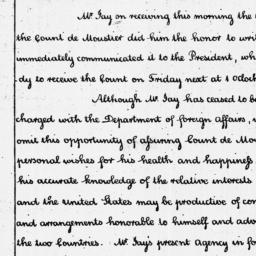 Mr. Jay on receiving this morning the
the Count de Moustier did him the honor to wri
immediately communicated it to the President, wh
dy to receive the Count on Friday next at 1 oClock
Although Mr. Jay has ceased to b
charged with the Department of foreign affairs,
omit this opportunity of assuring Count de Mou
personal wishes for his health and happiness
his accurate knowledge of the relative interests
and the United States may be productive of con
and arrangements honorable to himself and adv
the two Countries. Mr. Jay's present agency in fo